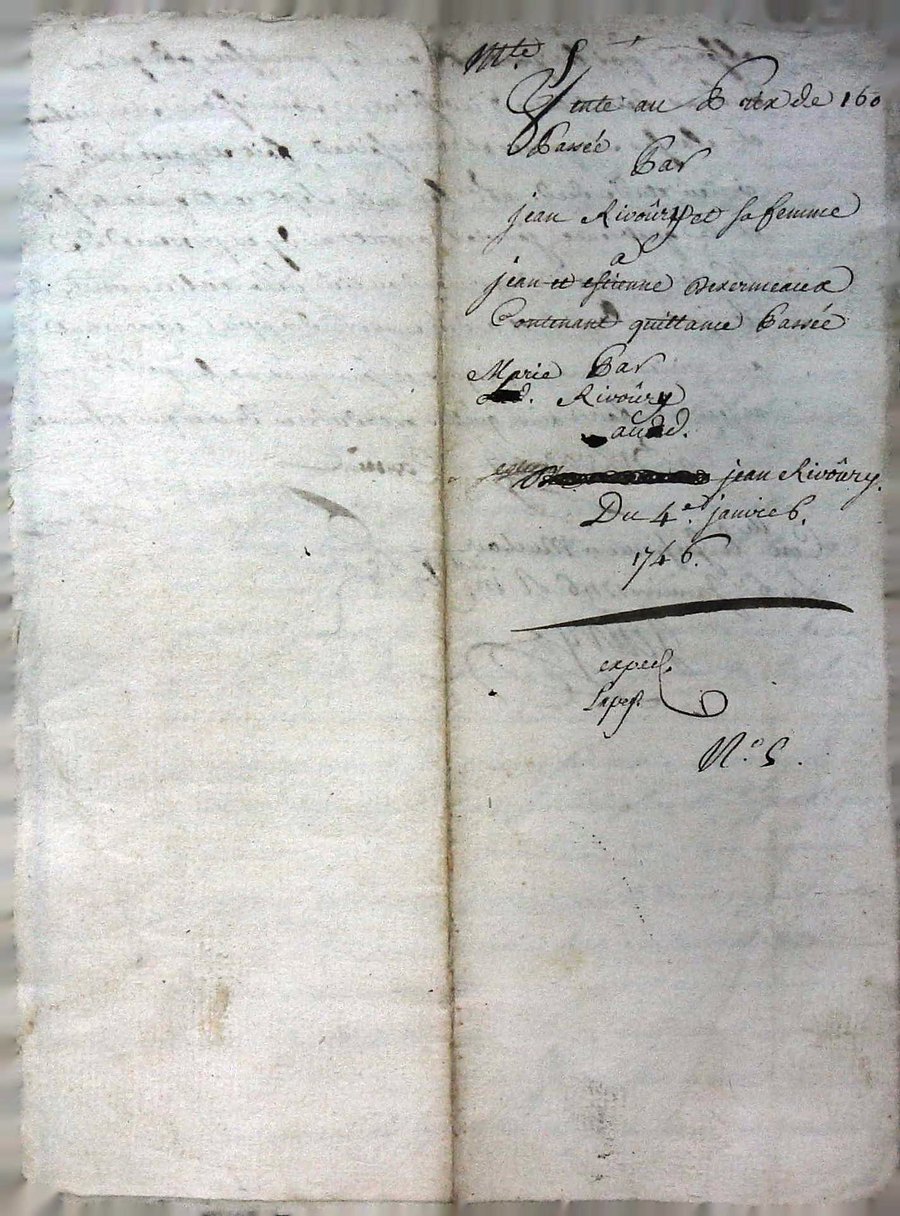 Mte 5
Vente au Prix de 160
Passée
Par
jean Rivoûry et sa femme
a
jean et estienne Dexermeaux
Contenant quittance Passée
Marie Par
Rivoûry
aud.
jean Rivoûry.
Du 4e. janvier
1746.
exped.
N.o 5.